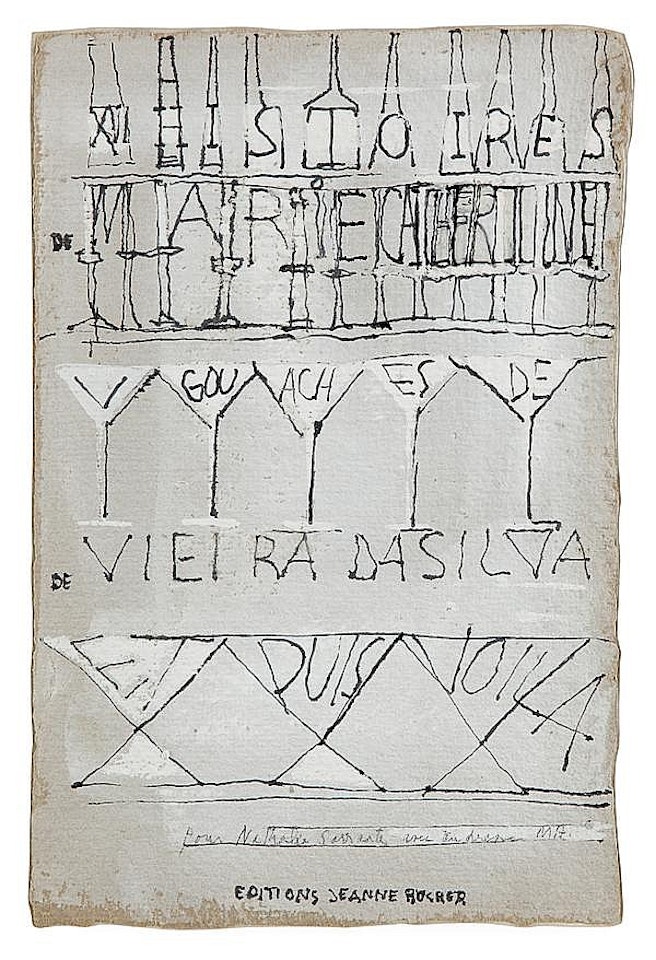 XVI HISTOIRES
DE MARIE CATHERINE
V GOUACHES DE
DE VIEIRA DA SILVA
ET PUIS VOILA
pour Nathalie Sarraute avec tendresse
EDITIONS JEANNE BUCHER